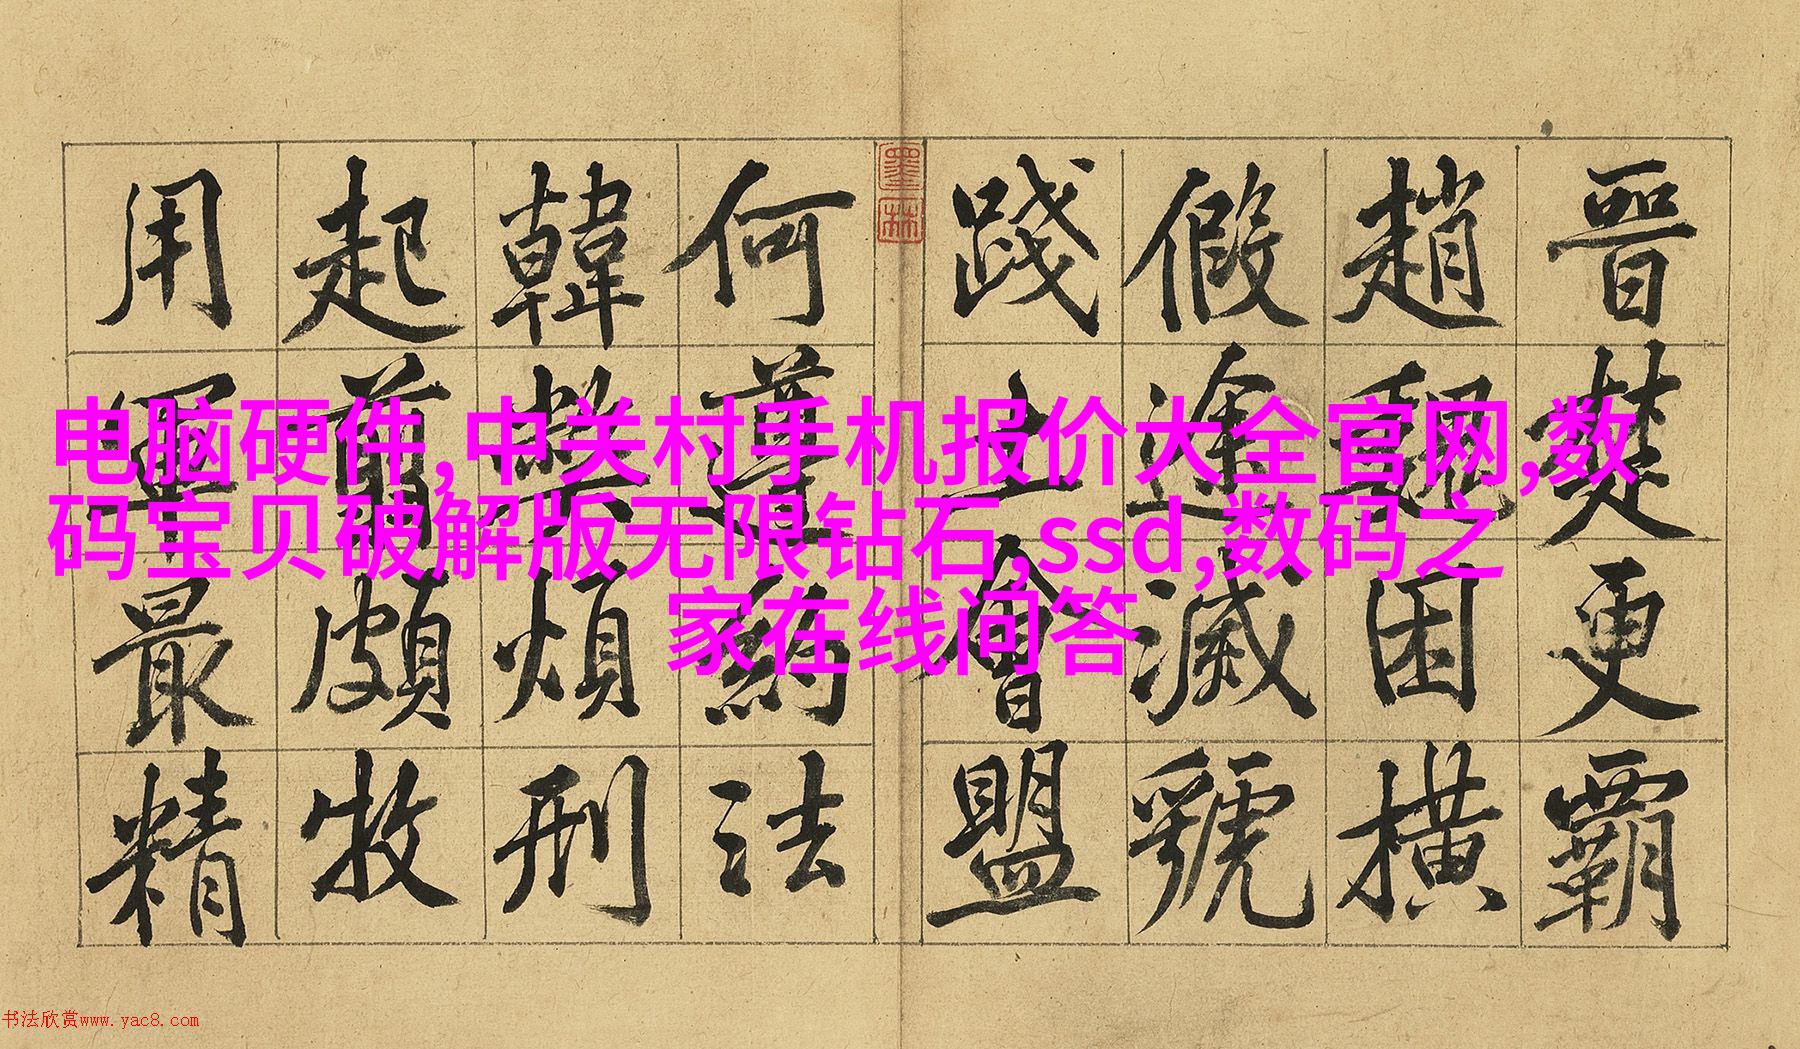 晉楚更霸
趙魏困橫
假途滅虢
踐土會盟
墨林
何遵約法
韓弊煩刑
起翦頗牧
用軍最精
电脑硬件,中关村手机报价大全官网,数
码宝贝破解版无限钻石,ssd,数码之
家在线问答
书法欣赏www.yac8.com